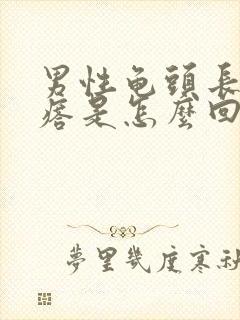 男性龟頭長
痞是怎麼回
夢里幾度寒秋